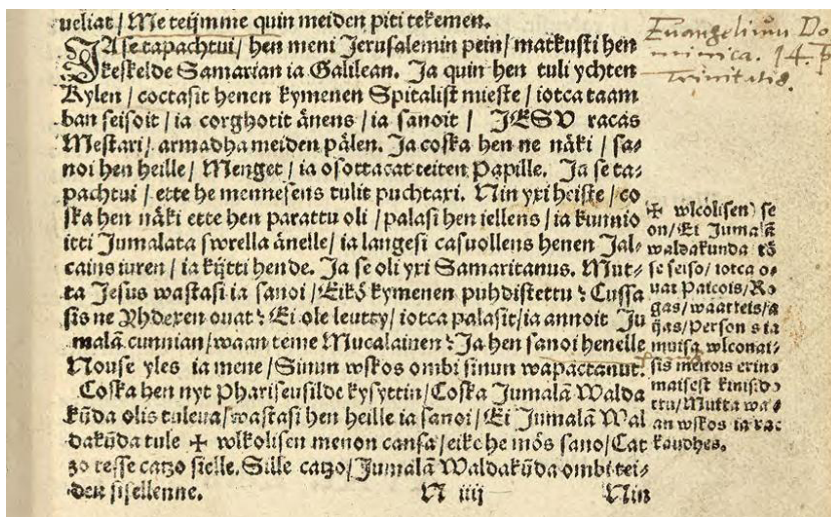 ueliat / Me teijmme quin meiden piti tekemen.
JA se tapachtui / hen meni Jerusalemin pein / matkusti hen
keskelde Samarian ia Galilean. Ja quin hen tuli ychten
Kylen / coctasit henen kymenen Spitalist mieste / iotca taam
ban seisoit / ia corghotit änens / ia sanoit / JESV racas
Mestari / armadha meiden pälen. Ja coska hen ne näki / sa⸗
noi hen heille / Menget / ia osottacat teiten Papille. Ja se ta⸗
pachtui / ette he mennesens tulit puchtaxi. Nin yxi heiste / co
ska hen näki ette hen parattu oli / palasi hen iellens / ia kunnio
itti Jumalata swrella änelle / ia langesi casuollens henen Jal⸗
cains iuren / ia kijtti hende. Ja se oli yxi Samaritanus. Mut⸗
ta Jesus wastasi ia sanoi / Eikö kymenen puhdistettu? Cussa
sis ne Yhdexen ouat? Ei ole leutty / iotca palasit / ia annoit Ju
malā cunnian / waan teme Mucalainen? Ja hen sanoi henelle
Nouse yles ia mene / Sinun wskos ombi sinun wapactanut.
Coska hen nyt Phariseusilde kysyttin / Coska Jumalā Walda
kūda olis tuleua / wastasi hen heille ia sanoi / Ei Jumalā Wal
dakūda tule ✠ wlkolisen menon cansa / eike he mös sano / Cat
zo tesse catzo sielle. Sille catzo / Jumalā Waldakūda ombi tei⸗
den sisellenne.
N iiij
Nin
Euangelium Do
minica. 14. p
Trinitatis.
✠ wlcolisen) se
on / Ei Jumalā
waldakunda tö
se seiso / iotca o⸗
uat Paicois / Ro
gas / waatteis / a
ijas / Person s ia
muisa wlconai⸗
sis menois erino
maisest kinisdo
ttu / Mutta wa⸗
an wskos ia rac
kaudhes.